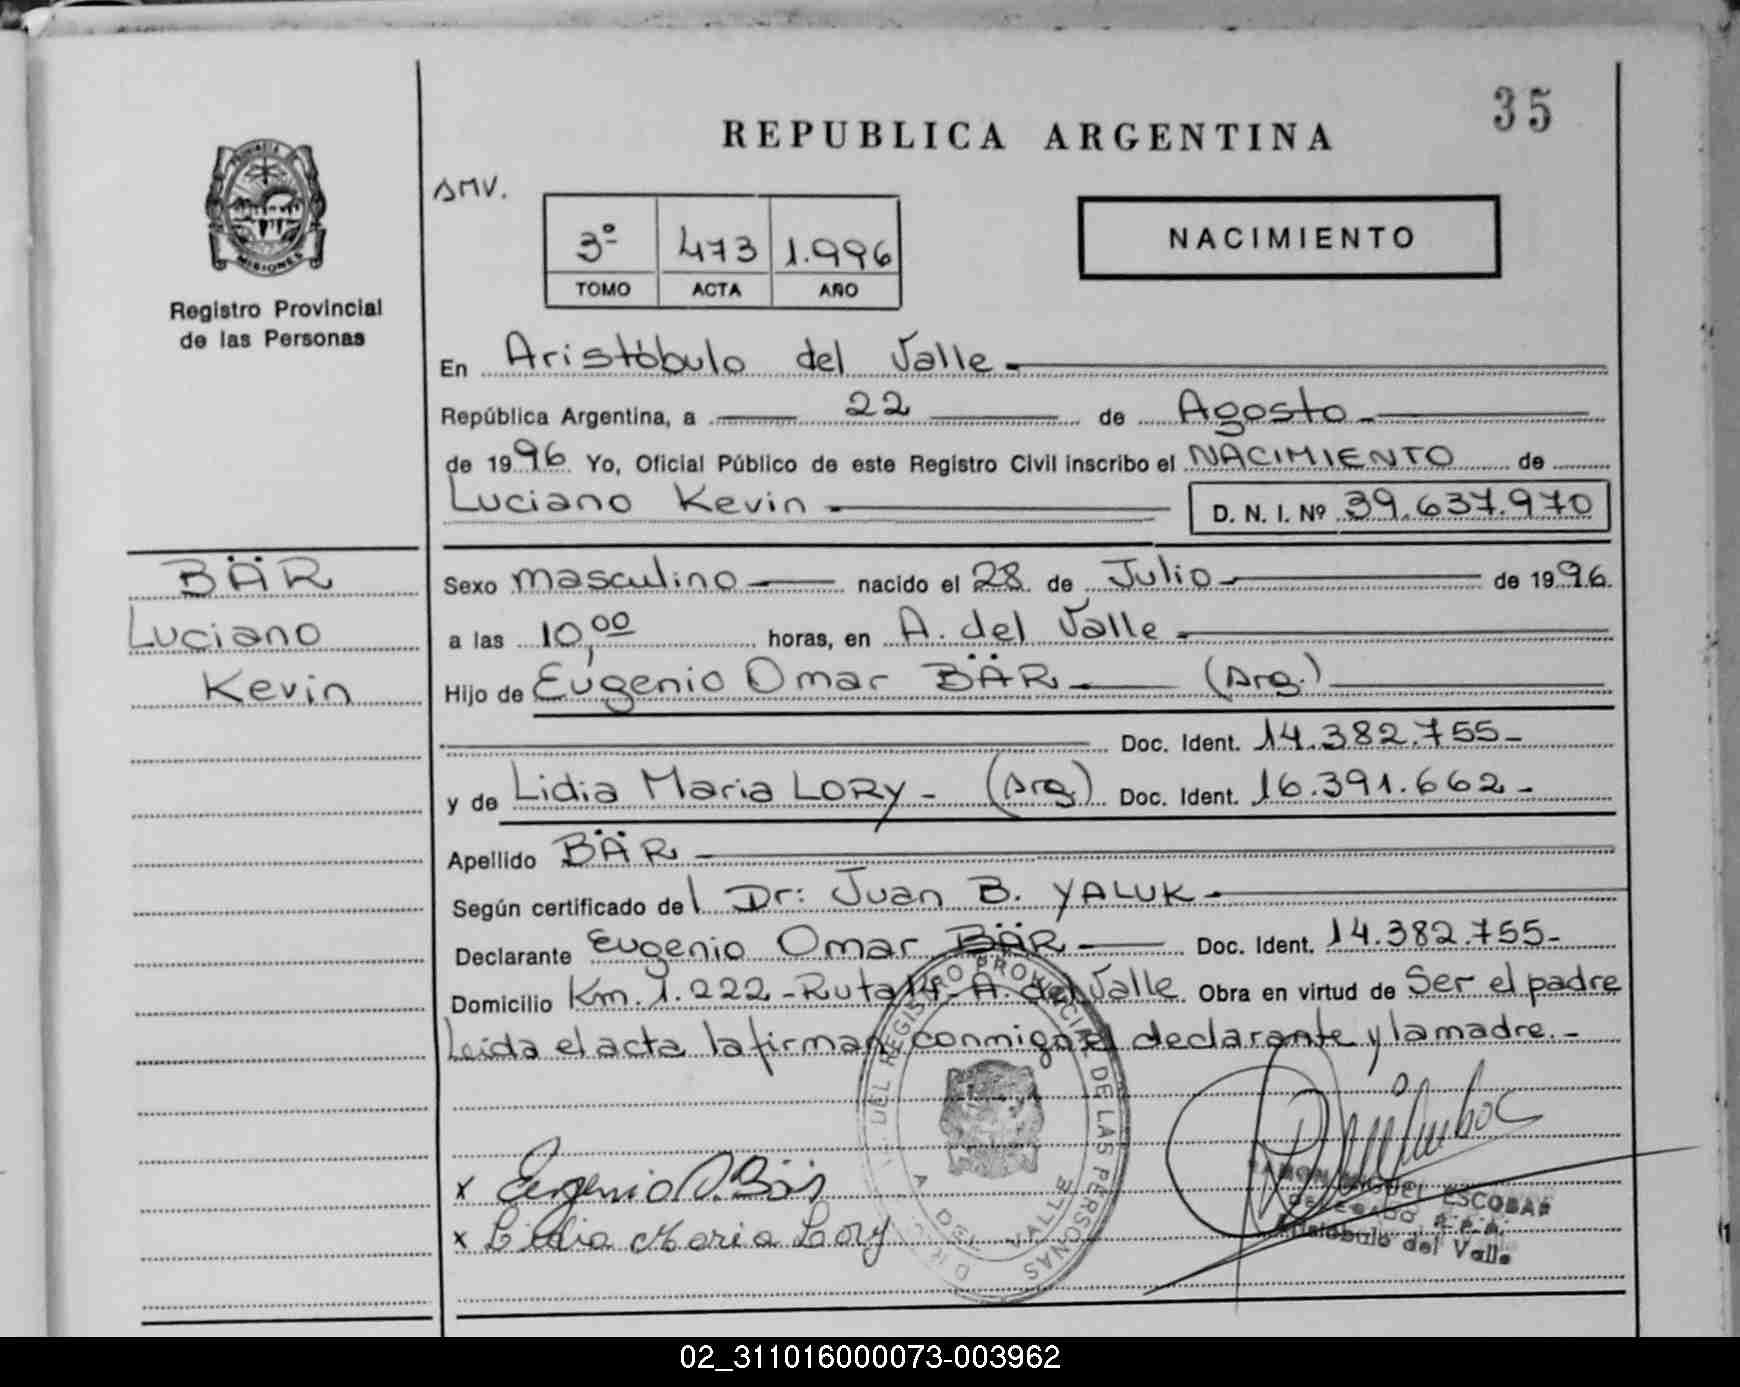 35
REPUBLICA ARGENTINA
SMV.
3º 473 1.996
TOMO ACTA AÑO
NACIMIENTO
MISIONES
Registro Provincial
de las Personas
En Aristóbulo del Valle
República Argentina, a 22 de Agosto
de 1996 Yo, Oficial Público de este Registro Civil inscribo el NACIMIENTO de
Luciano Kevin D. N. I. Nº 39.637.970
BÄR
Luciano
Kevin
Sexo masculino nacido el 28 de Julio de 1996.
a las 10,00 horas, en A. del Valle
Hijo de Eugenio Omar BÄR (Arg.)
Doc. Ident. 14.382.755-
y de Lidia Maria LORY - (Arg.) Doc. Ident. 16.391.662-
Apellido BÄR
Según certificado del Dr: Juan B. YALUK
Declarante Eugenio Omar BÄR Doc. Ident. 14.382.755-
Domicilio Km. 1.222 - Ruta 14 - A. del Valle Obra en virtud de Ser el padre
Leida el acta la firman conmigo el declarante y la madre.-
DEL REGISTRO PROVINCIAL DE LAS PERSONAS
A. DEL VALLE
x Eugenio O. Bär
x Lidia Maria Lory
RAMON MIGUEL ESCOBAR
DELEGADO R.P.P.
Aristobulo del Valle
02_311016000073-003962